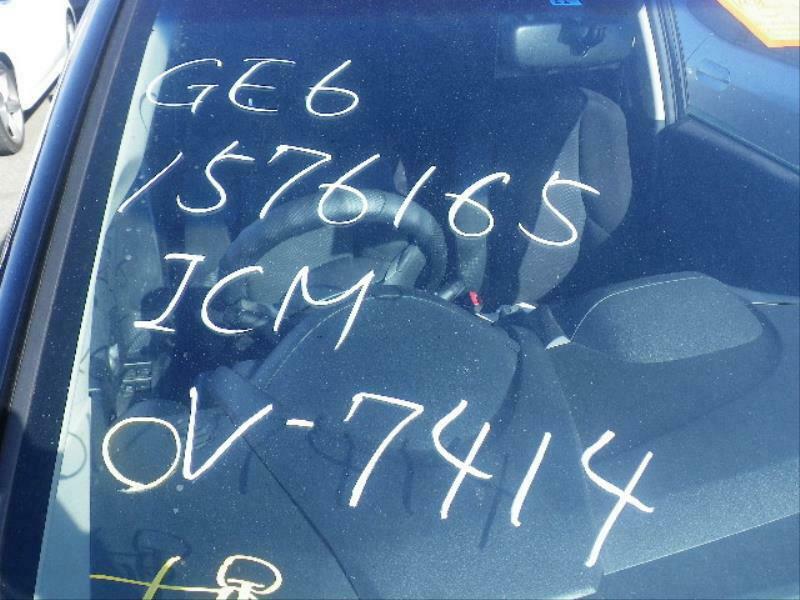 GE6
1576165
ICM
OV-7414